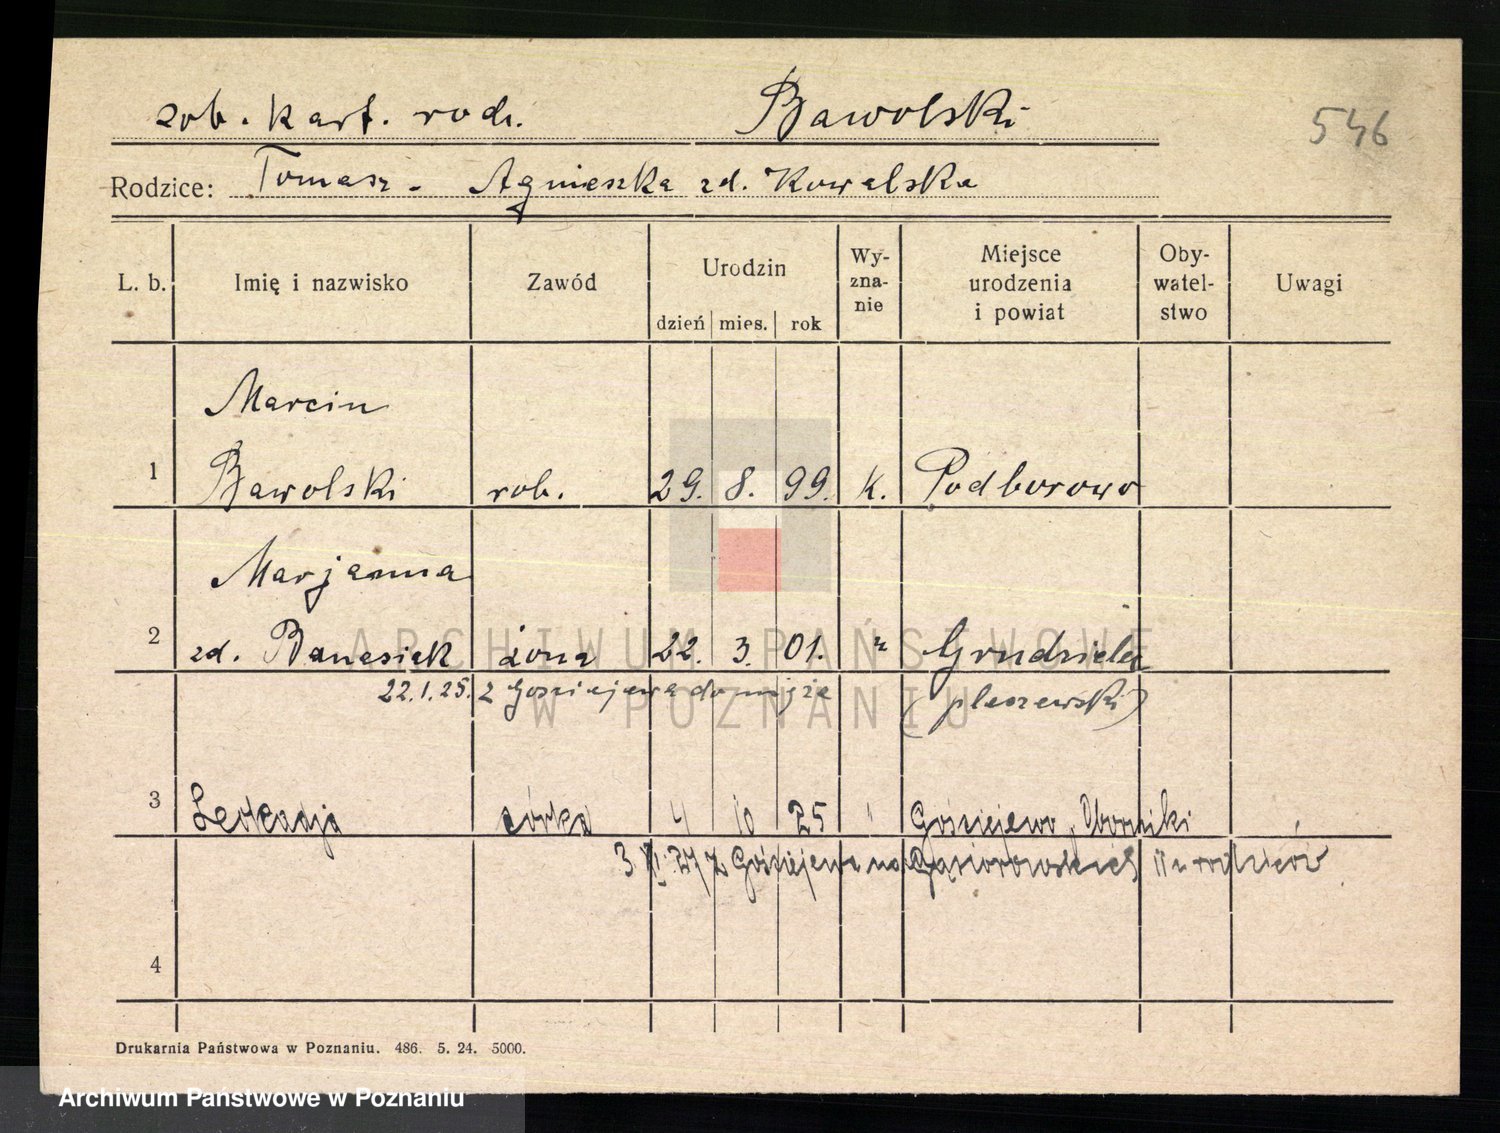 zob. kart. rodz. Bawolski 546
Rodzice: Tomasz - Agnieszka zd. Kowalska
L. b. Imię i nazwisko Zawód Urodzin dzień mies. rok Wy-zna-nie Miejsce urodzenia i powiat Oby-watel-stwo Uwagi
Marcin
1 Bawolski rob. 29. 8. 99. k. Podborowo
Marjanna
2 zd. Banasiak żona 22. 3. 01. " Grudzielec
22.1.25. z Gościejewa do męża (pleszewski)
3 Leokadja córka 4 10 25 " Gościejewo, Oborniki
3 XI. 27 z Gościejewa na Gąsiorowskich
4
Drukarnia Państwowa w Poznaniu. 486. 5. 24. 5000.
ARCHIWUM PAŃSTWOWE
W POZNANIU
Archiwum Państwowe w Poznaniu